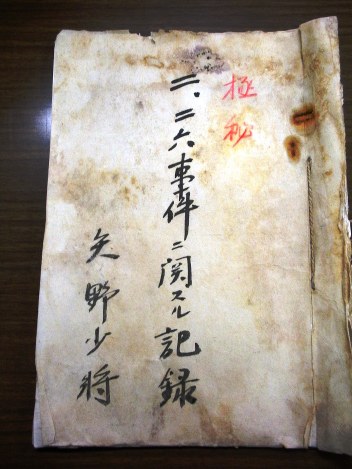 極秘
二、二六事件ニ関スル記録
矢野少将